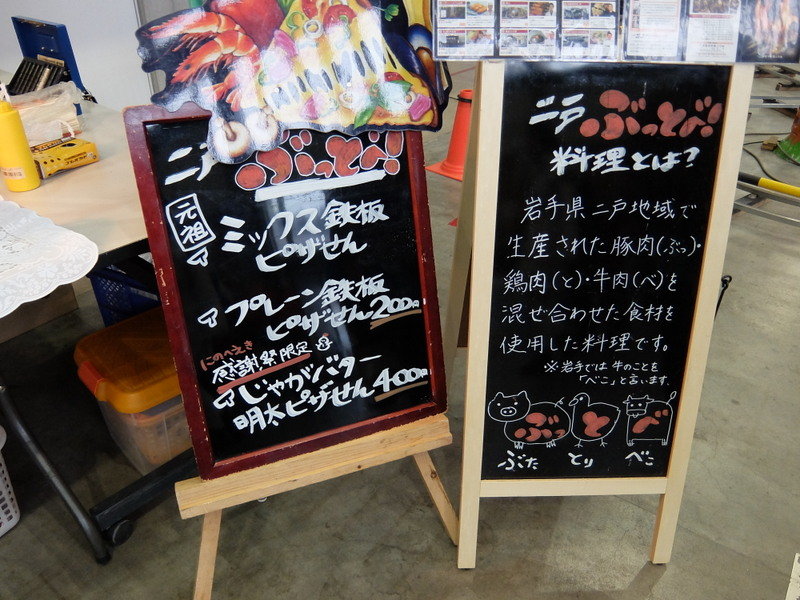 二戸
ぶっとべ!
元祖
ミックス鉄板
ピザせん
プレーン鉄板
ピザせん200円
にのへえき
感謝祭限定
じゃがバター
明太ピザせん400円
二戸ぶっとべ!
料理とは?
岩手県二戸地域で
生産された豚肉(ぶっ)・
鶏肉(と)・牛肉(べ)を
混ぜ合わせた食材を
使用した料理です。
※岩手では牛のことを
「べこ」と言います。
ぶっ と べ
ぶた とり べこ